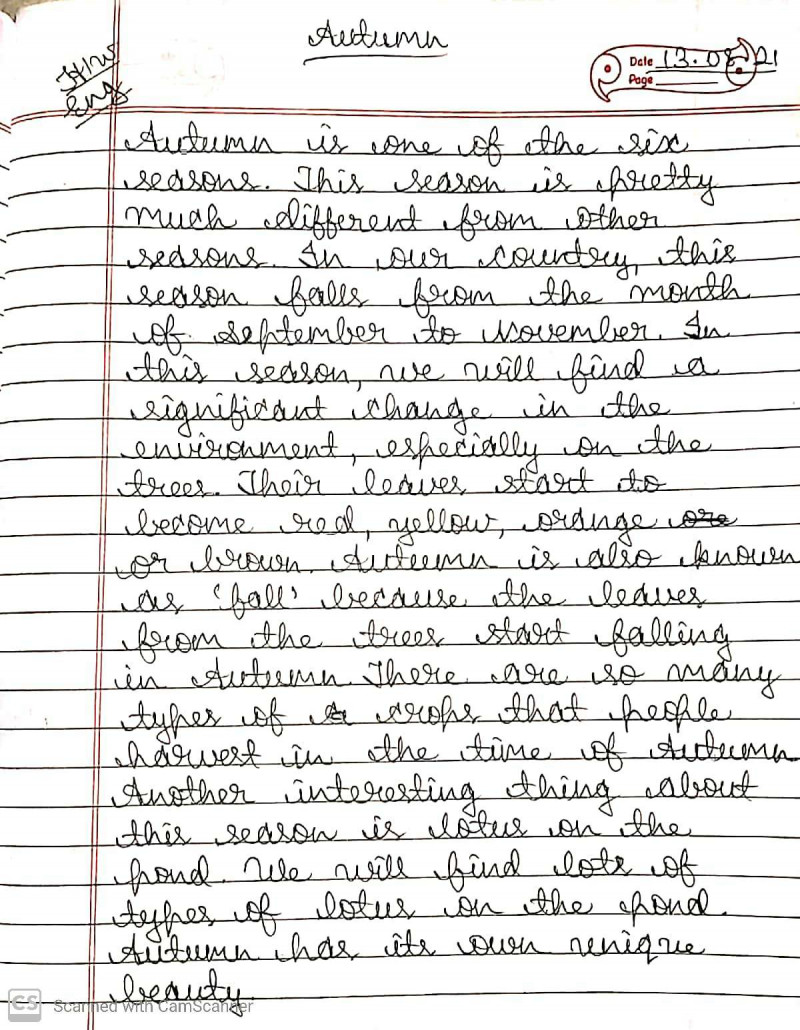 Autumn
H/W
Eng
Date 13.08.21
Page
Autumn is one of the six
seasons. This season is pretty
much different from other
seasons. In our country, this
season falls from the month
of September to November. In
this season, we will find a
significant change in the
environment, especially on the
trees. Their leaves start to
become red, yellow, orange ore
or brown. Autumn is also known
as 'fall' because the leaves
from the trees start falling
in Autumn. There are so many
types of crops that people
harvest in the time of Autumn
Another interesting thing about
this season is lotus on the
pond. We will find lots of
types of lotus on the pond.
Autumn has its own unique
beauty.
CS Scanned with CamScanner